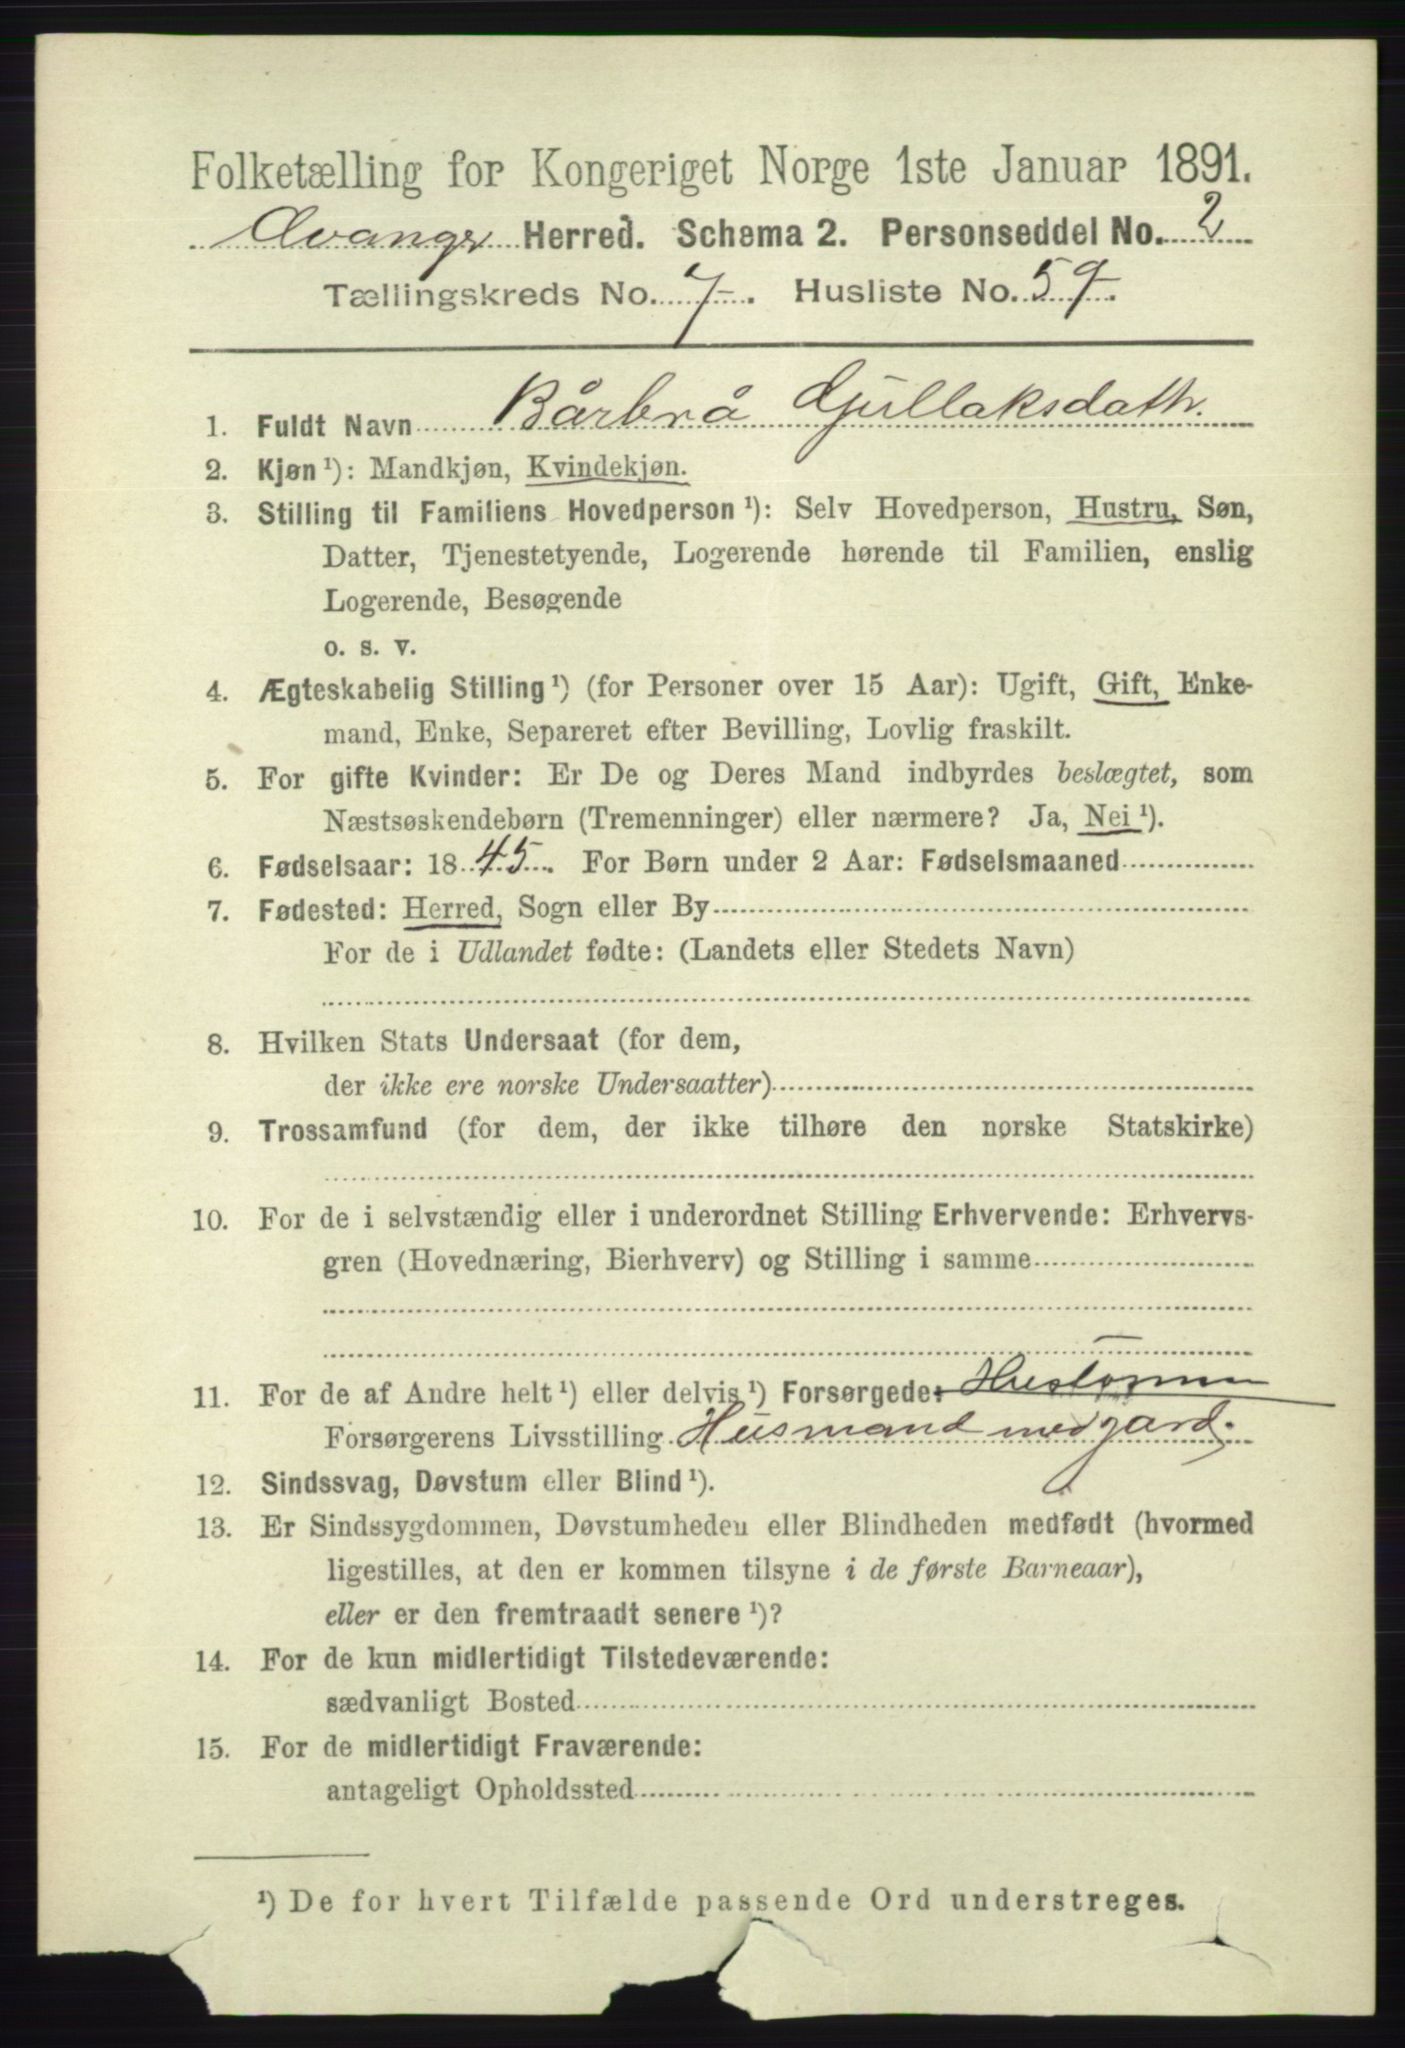 Folketælling for Kongeriget Norge 1ste Januar 1891.
Evanger Herred. Schema 2. Personseddel No. 2
Tællingskreds No. 7. Husliste No. 59.
1. Fuldt Navn Bårbrå Gjullaksdattr.
2. Kjøn ¹): Mandkjøn, Kvindekjøn.
3. Stilling til Familiens Hovedperson ¹): Selv Hovedperson, Hustru, Søn,
Datter, Tjenestetyende, Logerende hørende til Familien, enslig
Logerende, Besøgende
o. s. v.
4. Ægteskabelig Stilling ¹) (for Personer over 15 Aar): Ugift, Gift, Enke-
mand, Enke, Separeret efter Bevilling, Lovlig fraskilt.
5. For gifte Kvinder: Er De og Deres Mand indbyrdes beslægtet, som
Næstsøskendebørn (Tremenninger) eller nærmere? Ja, Nei ¹).
6. Fødselsaar: 1845. For Børn under 2 Aar: Fødselsmaaned
7. Fødested: Herred, Sogn eller By
For de i Udlandet fødte: (Landets eller Stedets Navn)
8. Hvilken Stats Undersaat (for dem,
der ikke ere norske Undersaatter)
9. Trossamfund (for dem, der ikke tilhøre den norske Statskirke)
10. For de i selvstændig eller i underordnet Stilling Erhvervende: Erhvervs-
gren (Hovednæring, Bierhverv) og Stilling i samme
11. For de af Andre helt ¹) eller delvis ¹) Forsørgede:
Forsørgerens Livsstilling Husmand med jord.
12. Sindssvag, Døvstum eller Blind ¹).
13. Er Sindssygdommen, Døvstumheden eller Blindheden medfødt (hvormed
ligestilles, at den er kommen tilsyne i de første Barneaar),
eller er den fremtraadt senere ¹)?
14. For de kun midlertidigt Tilstedeværende:
sædvanligt Bosted
15. For de midlertidigt Fraværende:
antageligt Opholdssted
¹) De for hvert Tilfælde passende Ord understreges.